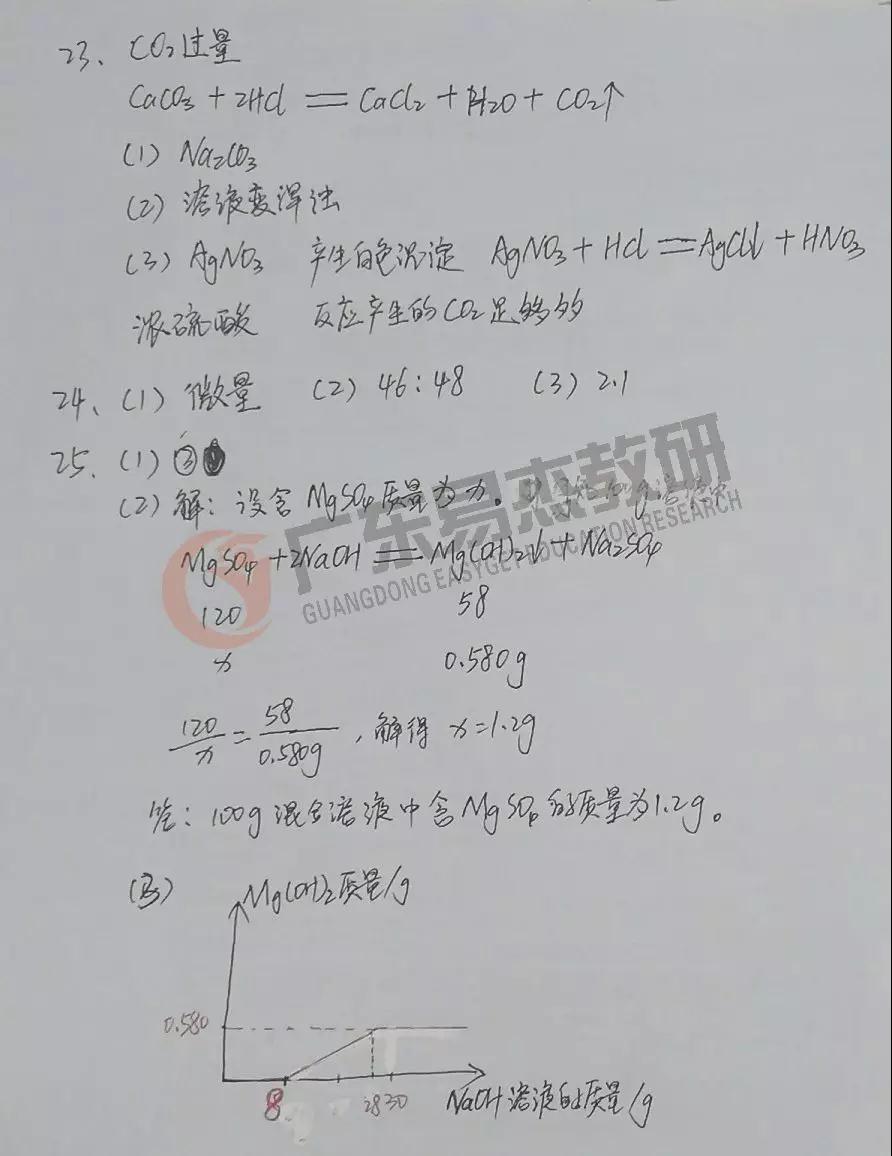 23、CO₂过量
CaCO₃ + 2HCl == CaCl₂ + H₂O + CO₂↑
(1) Na₂CO₃
(2) 溶液变浑浊
(3) AgNO₃ 产生白色沉淀 AgNO₃ + HCl == AgCl↓ + HNO₃
浓硫酸 反应产生的CO₂足够多
24、(1) 微量 (2) 46:48 (3) 2.1
25、(1) ③
(2) 解：设含MgSO₄质量为x。
广东易杰教研
GUANGDONG EASYGET EDUCATION RESEARCH
MgSO₄ + 2NaOH == Mg(OH)₂↓ + Na₂SO₄
120 58
x 0.580g
120/x = 58/0.580g，解得 x=1.2g
答：100g混合溶液中含MgSO₄的质量为1.2g。
(3) Mg(OH)₂质量/g
0.580
8 28 30 NaOH溶液的质量/g